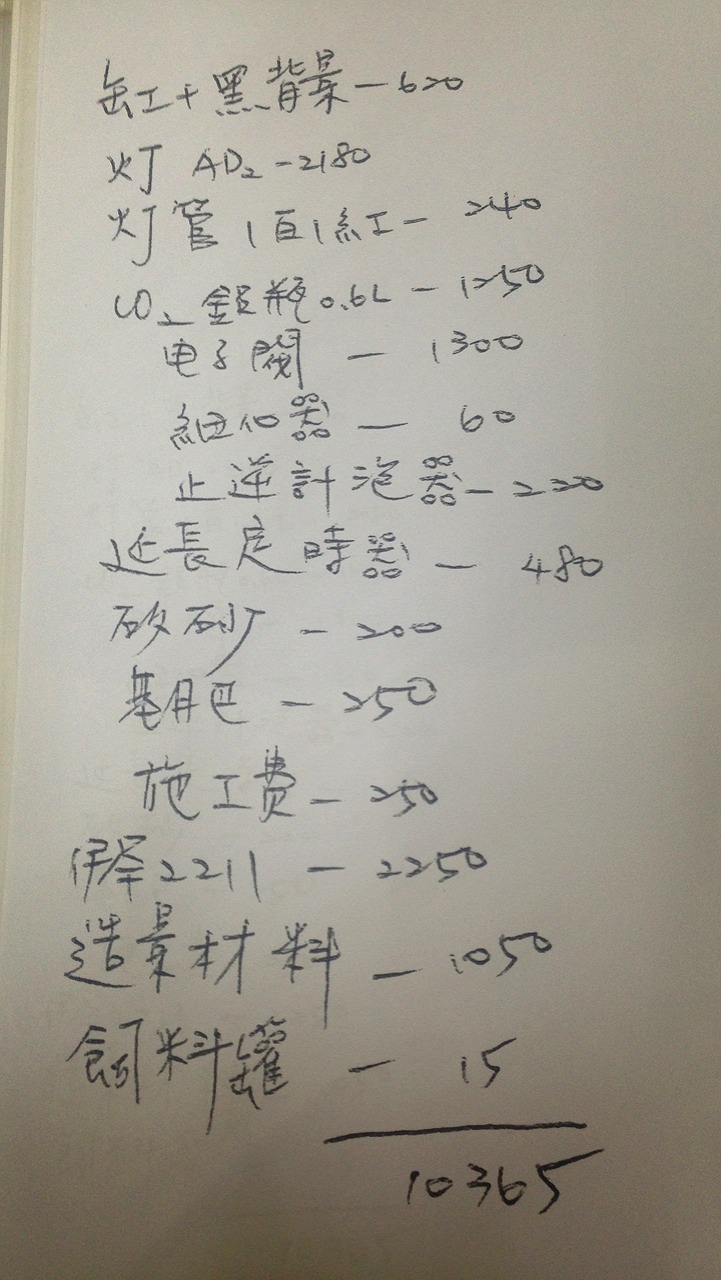 缸+黑背景－620
灯 AD2－2180
灯管 1白1紅－240
CO2 鋁瓶0.6L－1250
电子閥 － 1300
細化器 － 60
止逆計泡器－220
延長定時器 － 480
矽砂 －200
基肥 － 250
施工費－250
伊罕2211 － 2250
造景材料 － 1050
飼料罐 － 15
10365